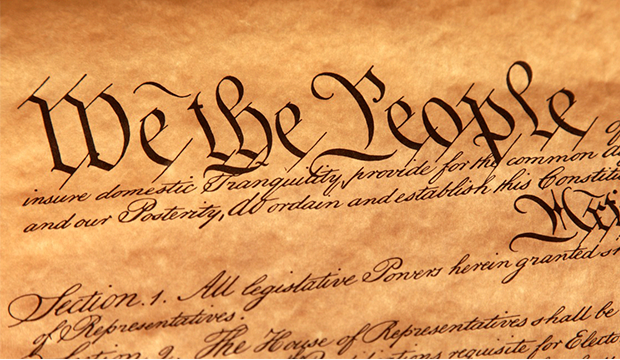 We the People
insure domestic Tranquility, provide for the common
and our Posterity, do ordain and establish this Constitu
Section. 1. All legislative Powers herein granted s
of Representatives.
Section. 2. The House of Representatives shall be
requisite for Elector